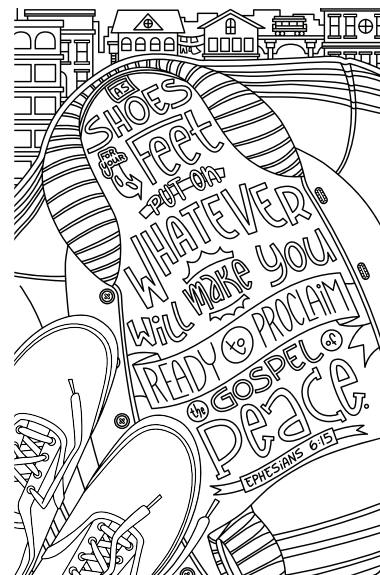 AS
SHOES
FOR YOUR Feet
PUT ON
WHATEVER
Will make you
READY to PROCLAiM
the GOSPEL of
Peace.
EPHESiANS 6:15